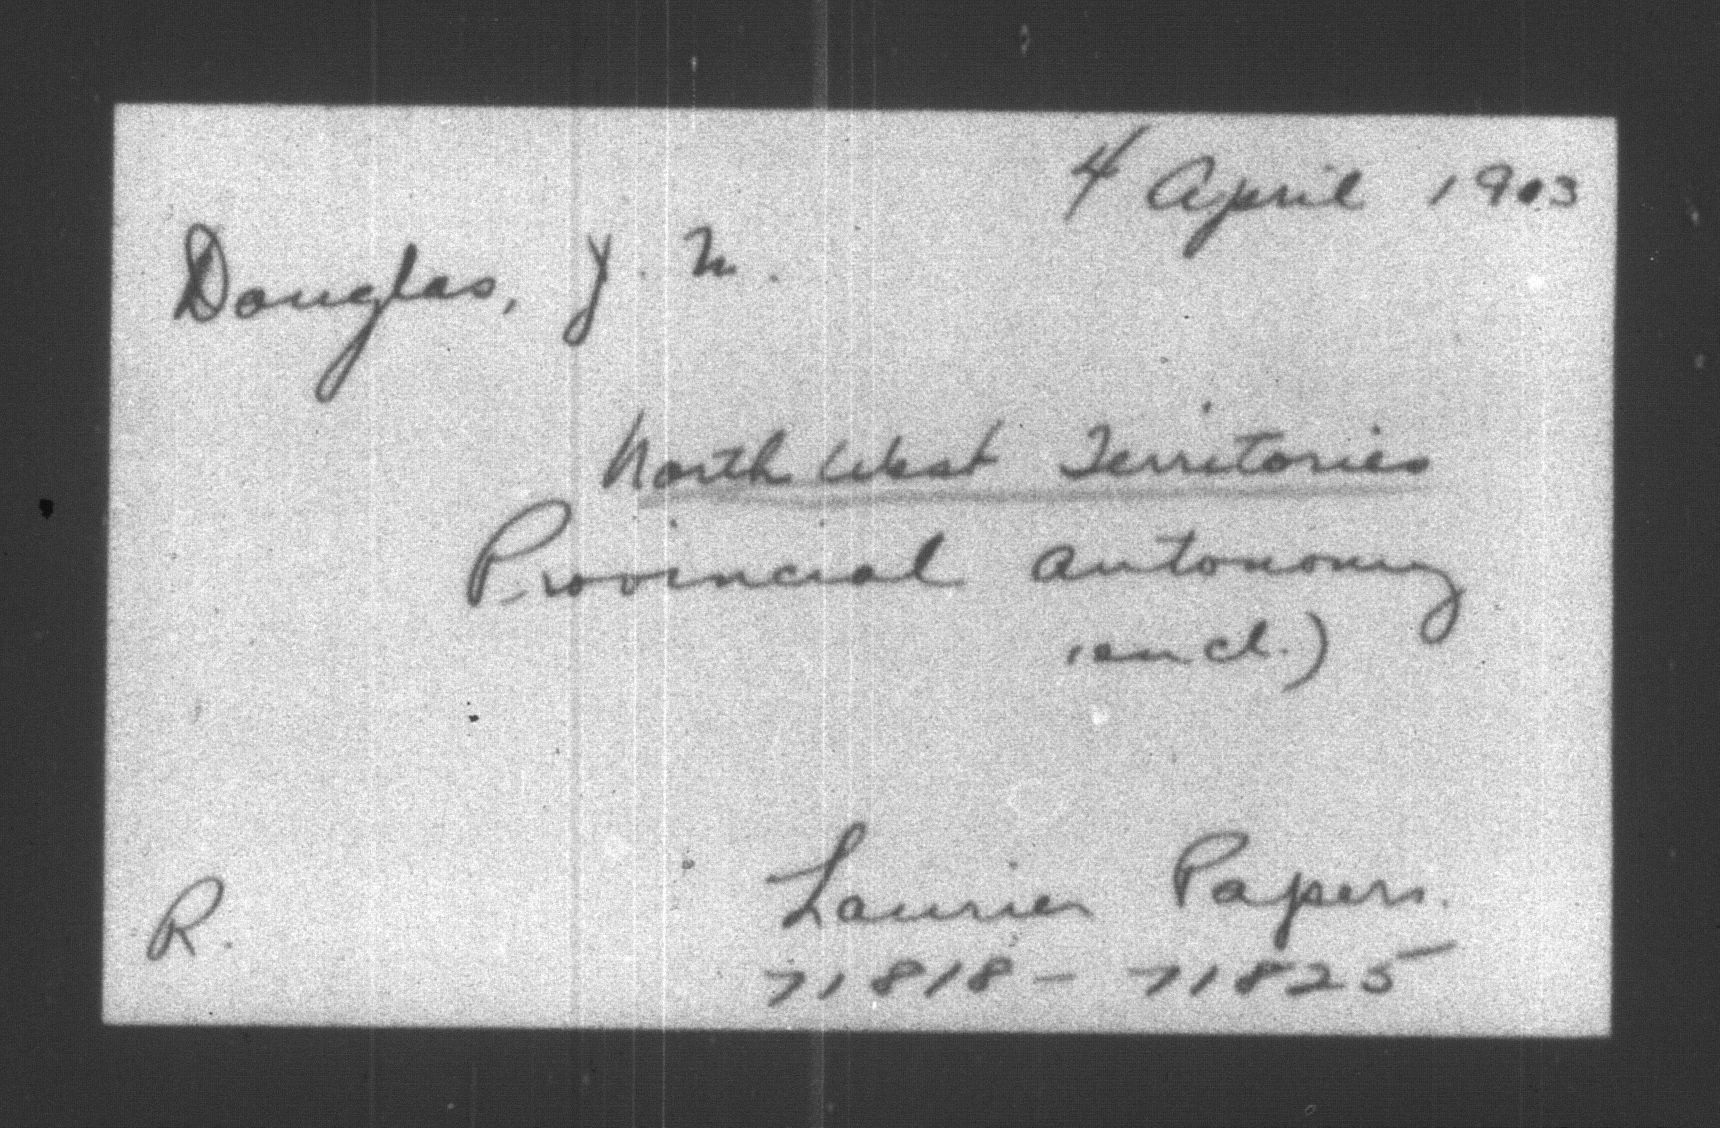 4 April 1903
Douglas, J. M.
North West Territories
Provincial autonomy
(encl.)
Laurier Papers.
R.
71818 - 71825